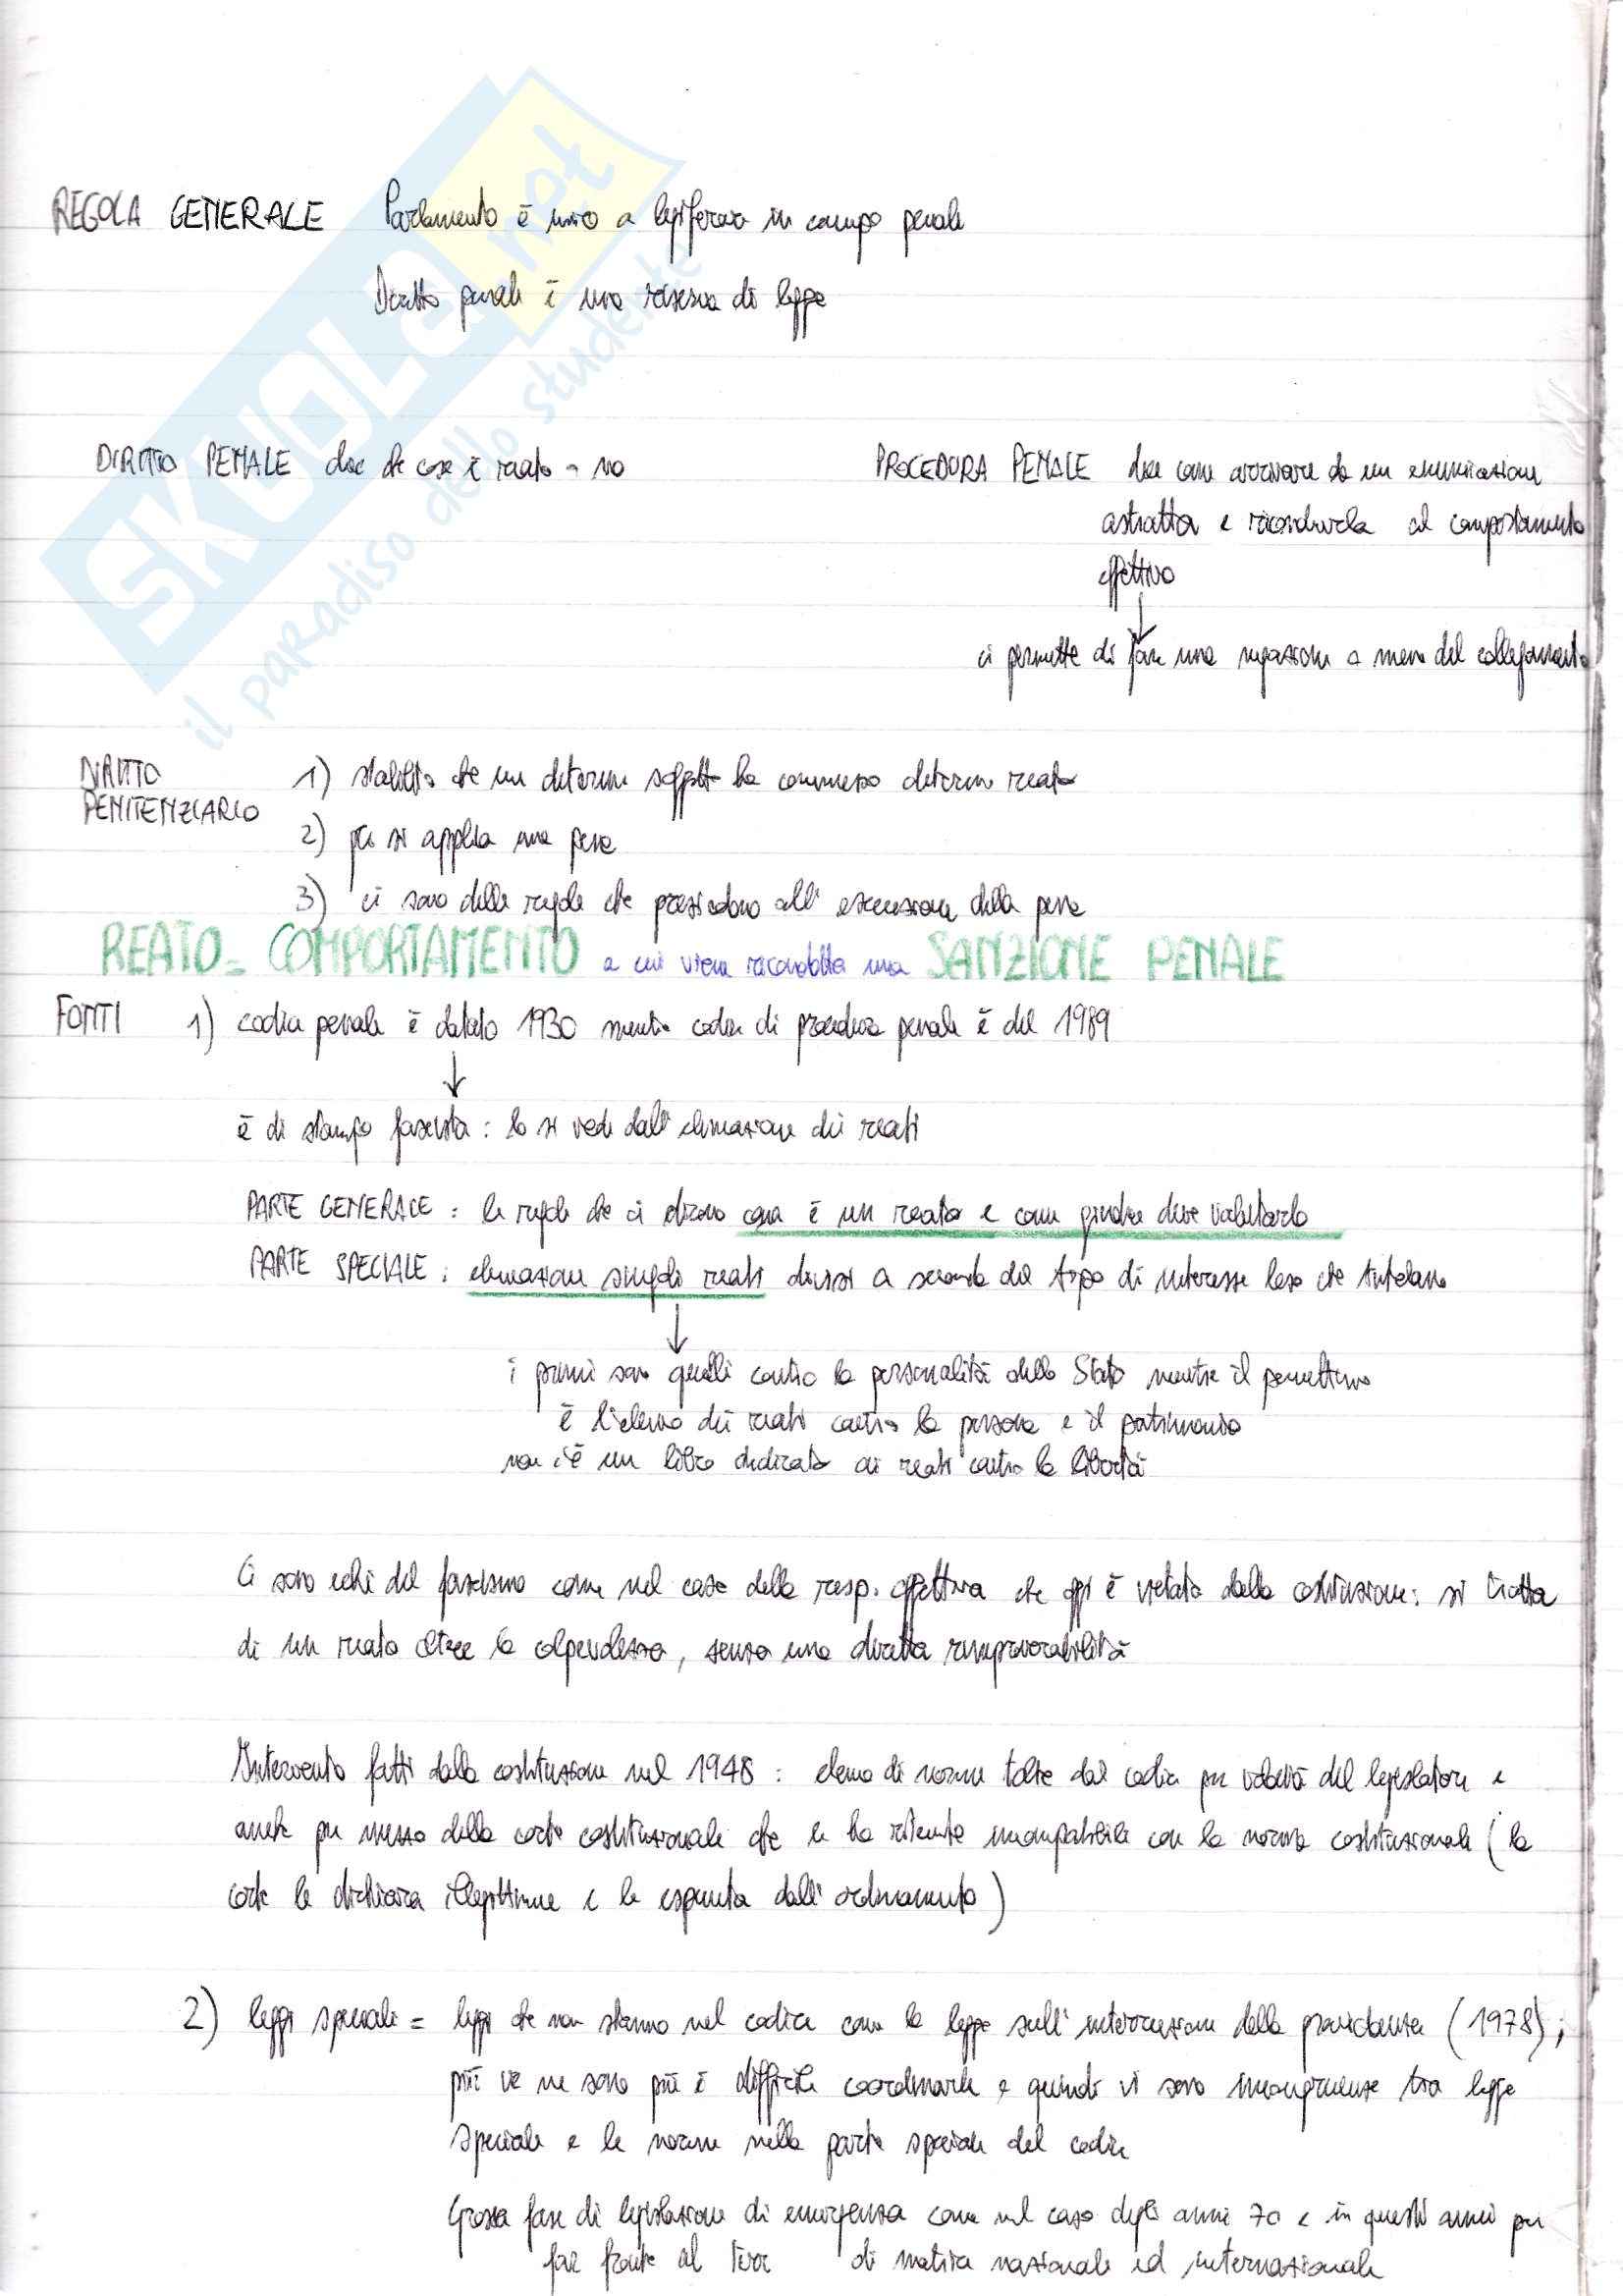 SKUOLA.net
il paradiso dello studente
REGOLA GENERALE Parlamento è unico a legiferare in campo penale
Diritto penale è una riserva di legge
DIRITTO PENALE dice che cosa è reato o no
PROCEDURA PENALE dice come arrivare da un enunciazione
astratta e ricondurla al comportamento
effettivo
↓
ci permette di fare una a meno del collegamento
DIRITTO
PENITENZIARIO
1) stabilito che un determ soggetto ha commesso determ reato
2) poi si applica una pena
3) ci sono delle regole che presiedono all' esecuzione della pena
REATO = COMPORTAMENTO a cui viene ricondotta una SANZIONE PENALE
FONTI 1) codice penale è datato 1930 mentre codice di procedura penale è del 1989
↓
è di stampo fascista : lo si vede dall' elencazione dei reati
PARTE GENERALE : le regole che ci dicono cosa è un reato e come giudice deve valutarlo
PARTE SPECIALE : elencazione singoli reati divisi a seconda del tipo di interesse leso che tutelano
↓
i primi sono quelli contro la personalità dello Stato mentre il penultimo
è l'elenco dei reati contro la persona e il patrimonio
non c'è un libro dedicato ai reati contro la libertà
Ci sono echi del fascismo come nel caso della resp. oggettiva che oggi è vietata dalla costituzione: si tratta
di un reato oltre la colpevolezza, senza una diretta rimproverabilità
Intervento fatti dalla costituzione nel 1948 : elenco di norme tolte dal codice per volontà del legislatore e
anche per mezzo della corte costituzionale che le ha ritenute incompatibile con la norma costituzionale ( la
corte le dichiara illegittime e le espunta dall' ordinamento )
2) leggi speciali = leggi che non stanno nel codice come la legge sull' interruzione della gravidanza (1978) ;
più ve ne sono più è difficile coordinarle e quindi vi sono incongruenze tra legge
speciale e le norme nella parte speciale del codice
Grossa fase di legislazione di emergenza come nel caso degli anni 70 e in questi anni per
far fronte al terr di matrice nazionale ed internazionale